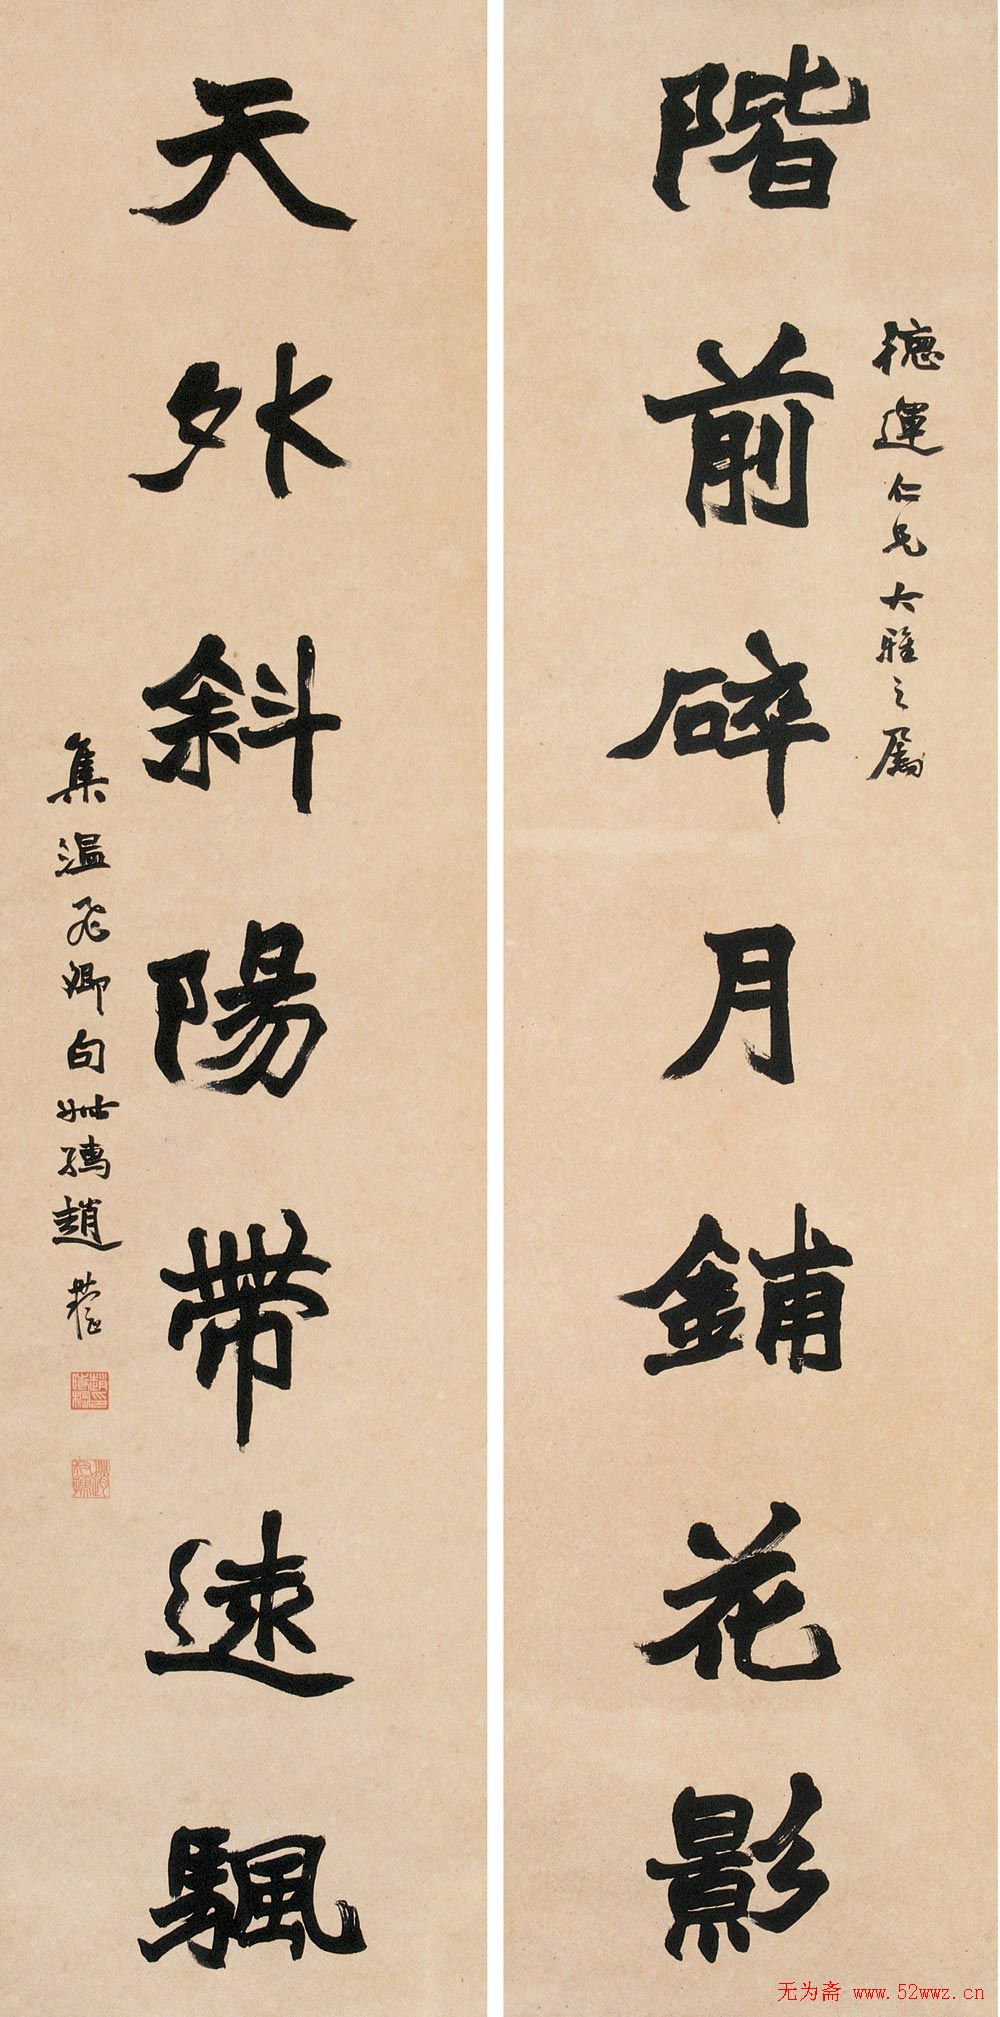 階前碎月鋪花影
德運仁兄大雅之屬
天外斜陽帶遠颿
集温飛卿句叔孺趙時棡
無为斋 www.52wwz.cn